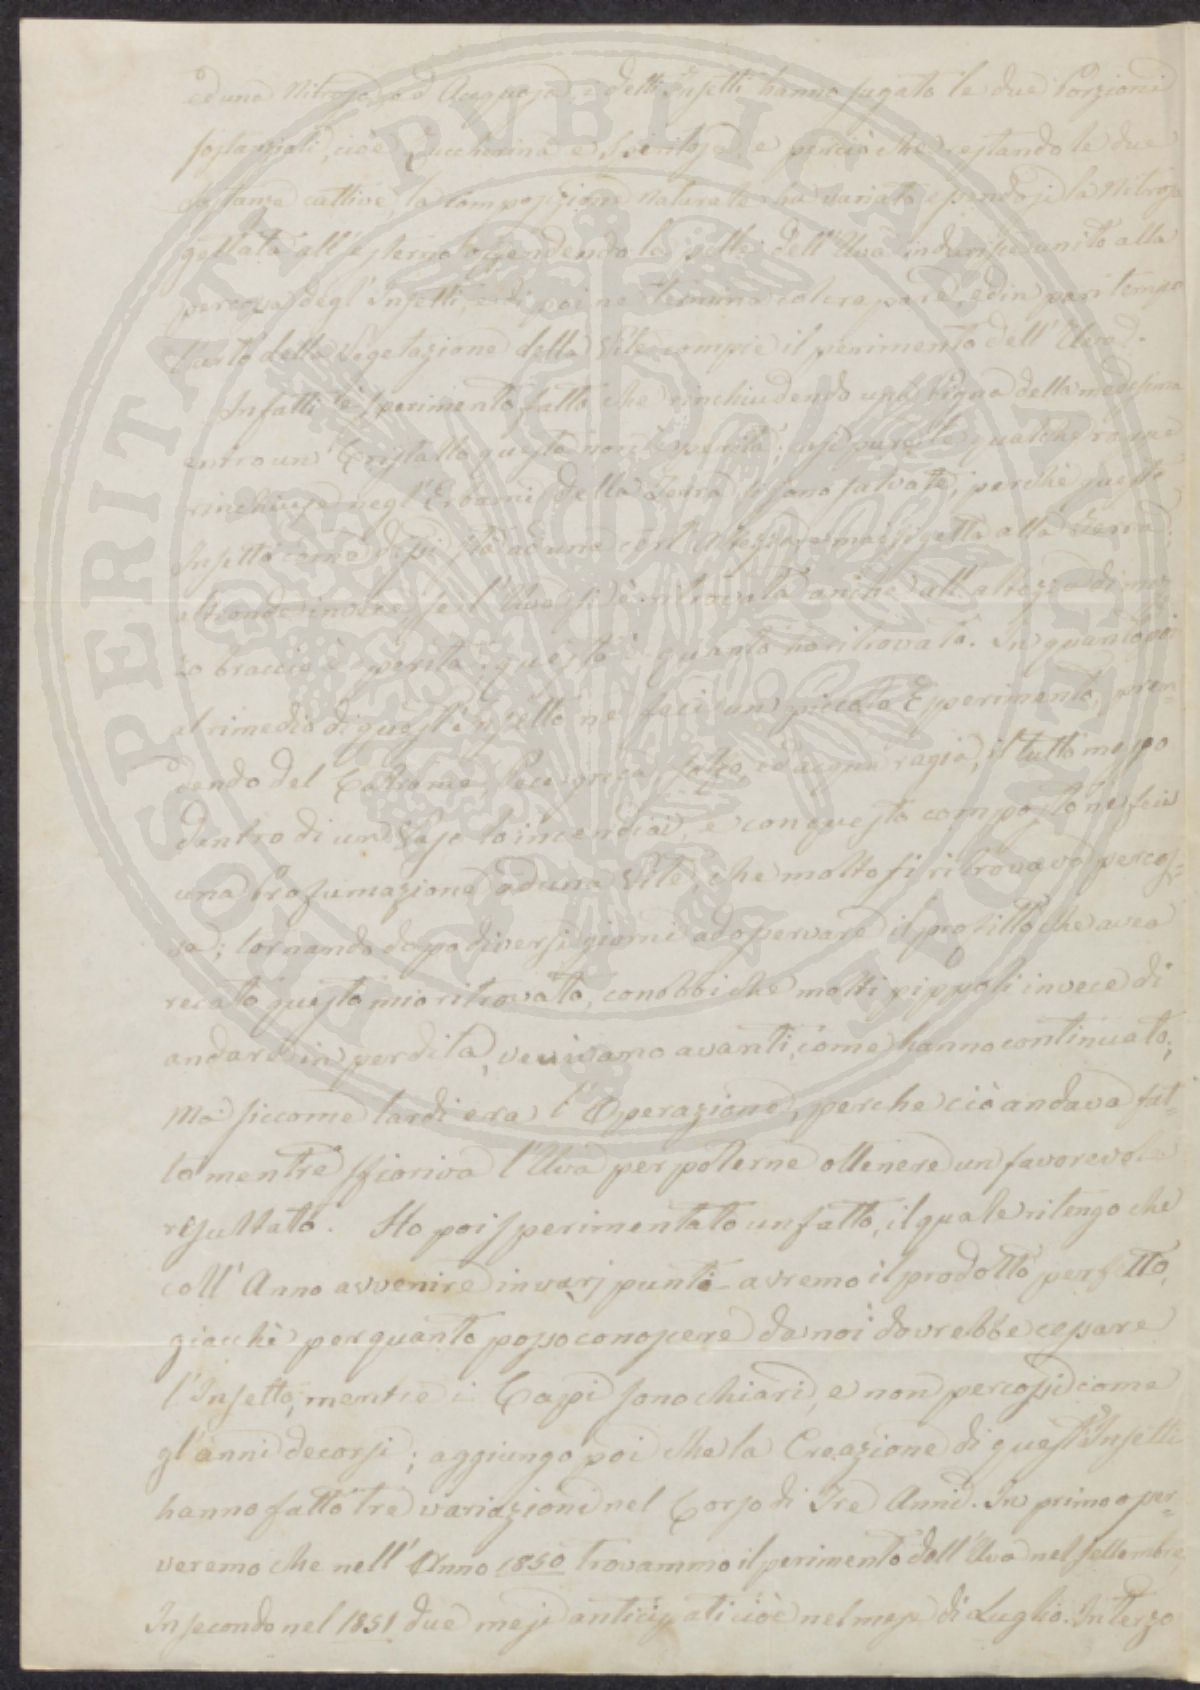 ed una Nitrosa, ed Acquosa; i detti Insetti hanno fugato le due Porzioni
sostanziali, cioè Zuccherina e Spiritosa e perciò che restando le due
sostanze cattive, la composizione naturale ha variato essendosi la Nitrosa
gettata all'esterno offendendo la pelle dell'Uva indurisce unito alla
percossa degl'Insetti, e di poi ne termina col crepare, ed in pari tempo
l'urto della Vegetazione della Vite compie il perimento dell'Uva.
Infatti lo sperimento fatto che rinchiudendo una Pigna della medesima
entro un Cristallo questa non è perita; così pure le qualche rame
rinchiuse negl'Erbami della Terra, si sono salvate, perchè questo
Insetto come dissi stà ad una cert'Altezza e mai si getta alla Terra;
altronde invece se l'Uva si è ritrovata anche all'altezza di mez
zo braccio è perita; questo è quanto ho ritrovato. In quanto poi
al rimedio di quest'Insetto ne feci un piccolo Esperimento, pren-
dendo del Catrame Pece greca, solfo, ed acqua ragia, il tutto messo
dentro di un Vaso lo incendiai, e con questo composto ne feci
una Profumazione ad una Vite, che molto si ritrovava percos=
sa; tornando dopo diversi giorni ad osservare il profitto che avea
recato questo mio ritrovato, conobbi che molti pippoli invece di
andare in perdita, venivano avanti, come hanno continuato;
Ma siccome tardi era l'Operazione, perche ciò andava fat=
to mentre sfioriva l'Uva per poterne ottenere un favorevole
resultato. Ho poi sperimentato un fatto, il quale ritengo che
coll'Anno avvenire in varj punti avremo il prodotto perfetto,
giacchè per quanto posso conoscere da noi dovrebbe cessare
l'Insetto, mentre i Capi sono chiari, e non percossi come
gl'anni decorsi; aggiungo poi che la Creazione di quest'Insetti
hanno fatto tre variazioni nel Corso di Tre Anni. In primo osser=
veremo che nell'Anno 1850 trovammo il perimento dell'Uva nel settembre,
In secondo nel 1851 due mesi anticipati cioè nel mese di Luglio. In terzo
PROSPERITATI PVBLICAE AVGENDAE